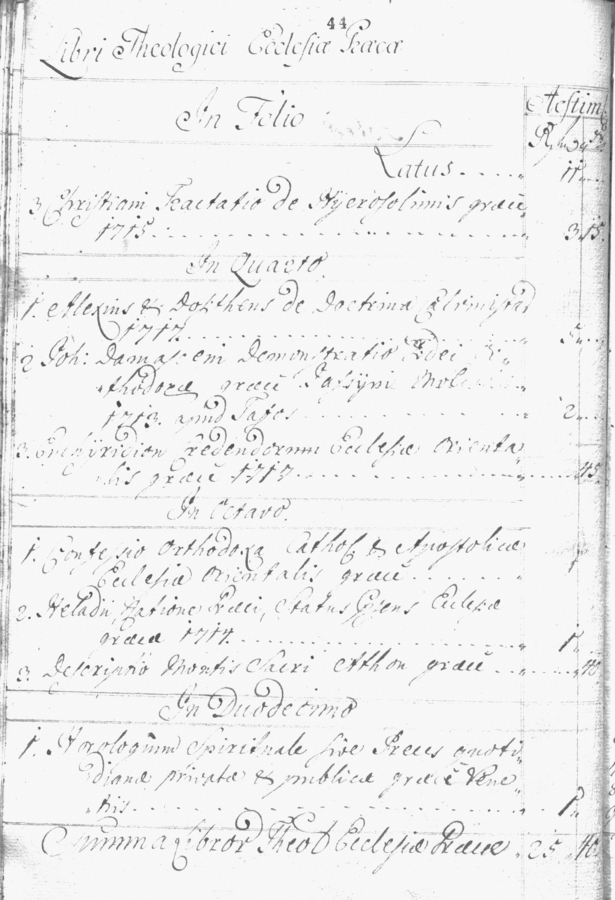 44
Libri Theologici Ecclesiæ Græcæ
Aestim
In Folio
Latus 11
3. Christiani Tractatio de Hyerosolimis græce
1715 3 15
In Quarto
1. Alexius & Dosithens de Doctrina
1717
2 Joh: Damasceni Demonstratio Fidei Or
thodoxæ græce Jassyni
1713. apud 2
3. Enchyridion Credendorum Ecclesiæ Orienta
lis græce 1717 45
In Octavo
1. Confessio Orthodoxa Cathol & Apostolicæ
Ecclesiæ Orientalis græce 1
2. Heladii Natione Græci, Status Ecclesiæ
græcæ 1714 1
3. Descriptio Montis Sacri Athon græce 40
In Duodecimo
1. Horologium Spirituale sive Preces quoti
dianæ privatæ & publicæ græce Vene
tiis 1
Summa Libror Theol Ecclesiæ Græcæ 25 40